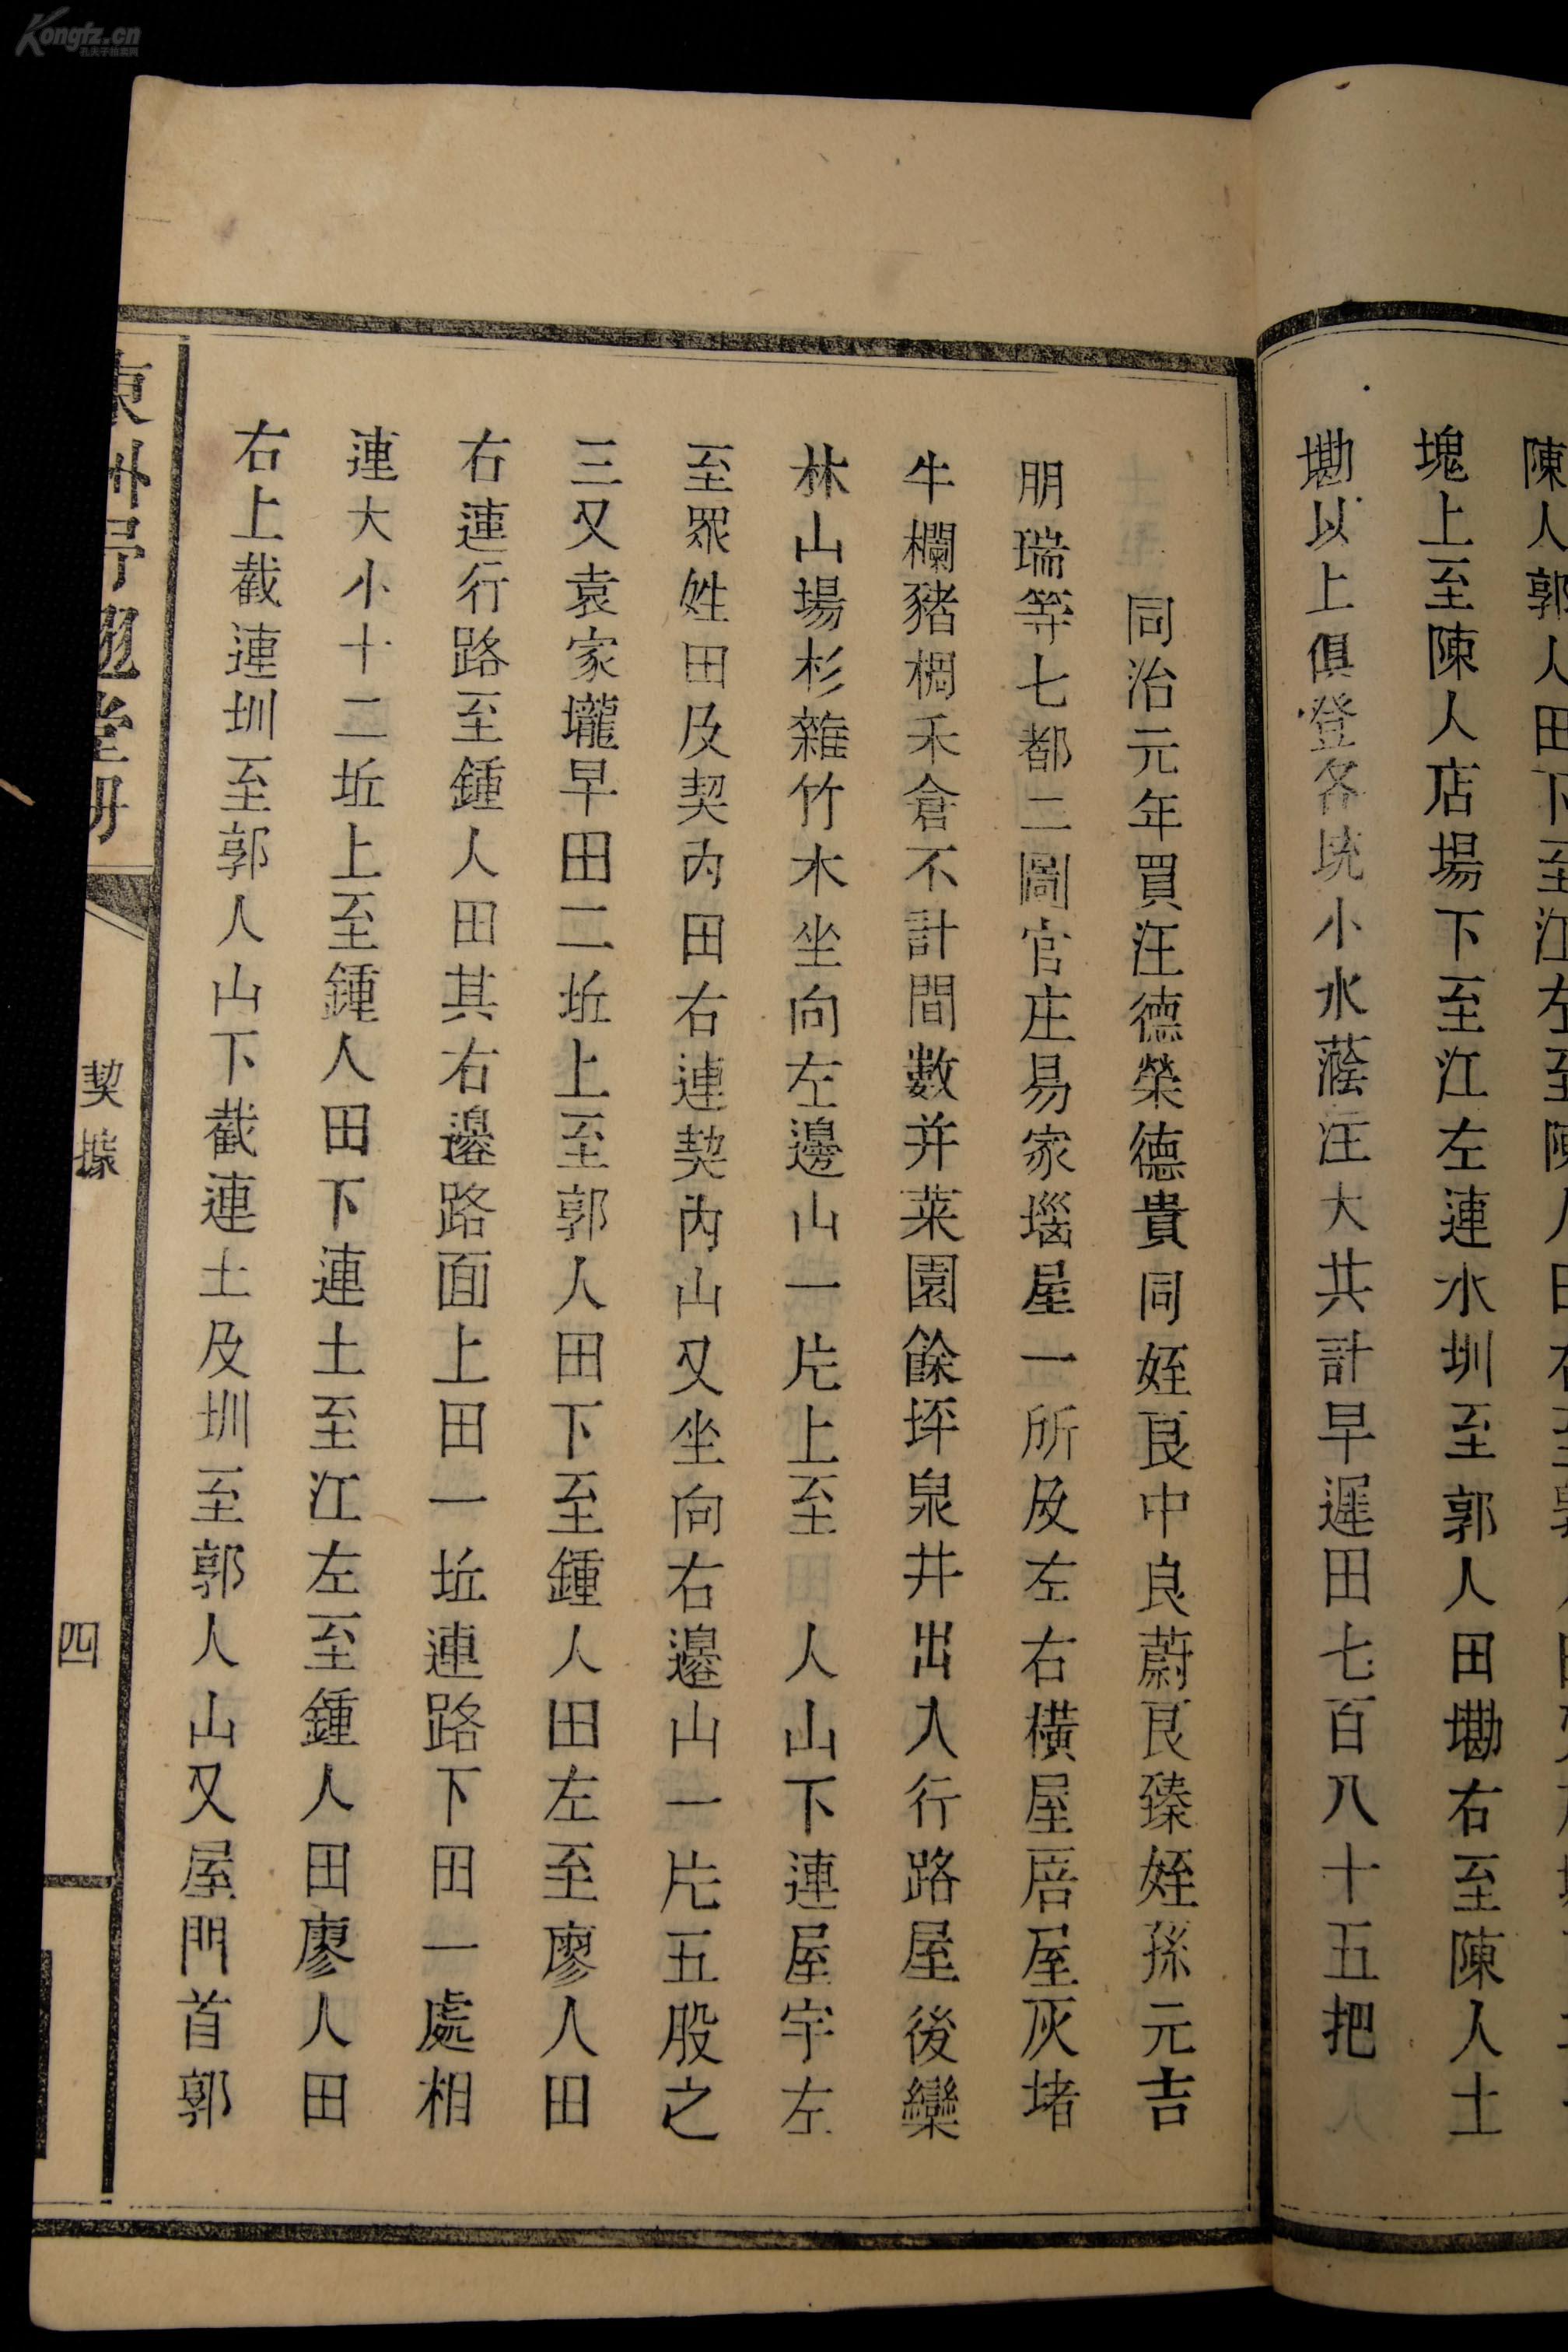 陳人郭人田下至江左至陳人田右至
塊上至陳人店場下至江左連水圳至郭人田墈右至陳人土
墈以上俱登各垸小水蔭注大共計早遲田七百八十五把
同治元年買汪德榮德貴同姪良中良蔚良臻姪孫元吉
朋瑞等七都二圖官庄易家塯屋一所及左右橫屋厝屋灰堵
牛欄豬椆禾倉不計間數并菜園餘坪泉井出入行路屋後欒
林山場杉雜竹木坐向左邊山一片上至 人山下連屋宇左
至眾姓田及契內田右連契內山又坐向右邊山一片五股之
三又袁家壠早田二坵上至郭人田下至鍾人田左至廖人田
右連行路至鍾人田其右邊路面上田一坵連路下田一處相
連大小十二坵上至鍾人田下連土至江左至鍾人田廖人田
右上截連圳至郭人山下截連土及圳至郭人山又屋門首郭
契據
四
Kongfz.cn